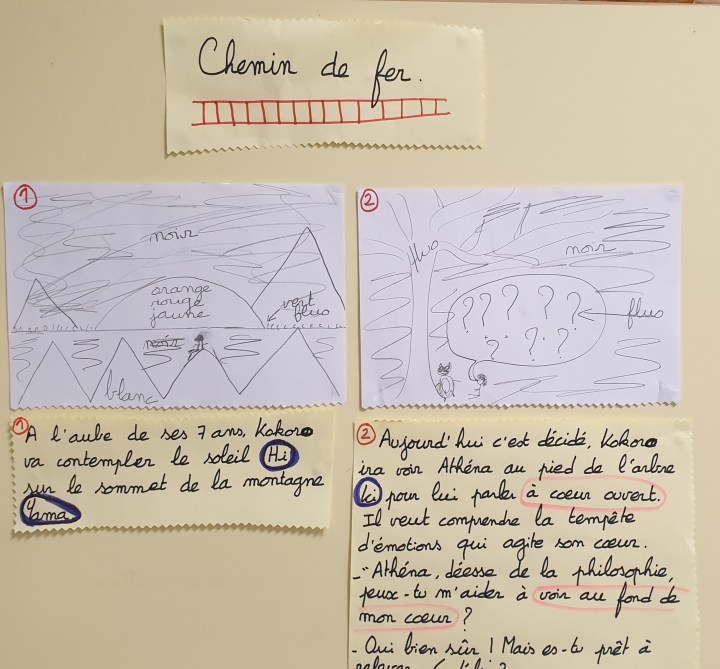 Chemin de fer.
1
noir
orange
rouge
jaune
vert
fluo
noir
blanc
2
fluo
noir
? ? ? ? ?
? ? ?
fluo
1 A l'aube de ses 7 ans, Kokoro
va contempler le soleil Hi
sur le sommet de la montagne
Yama
2 Aujourd'hui c'est décidé, Kokoro
ira voir Athéna au pied de l'arbre
ki pour lui parler à coeur ouvert.
Il veut comprendre la tempête
d'émotions qui agite son coeur.
-"Athéna, déesse de la philosophie,
peux-tu m'aider à voir au fond de
mon coeur ?
- Oui bien sûr ! Mais es-tu prêt à